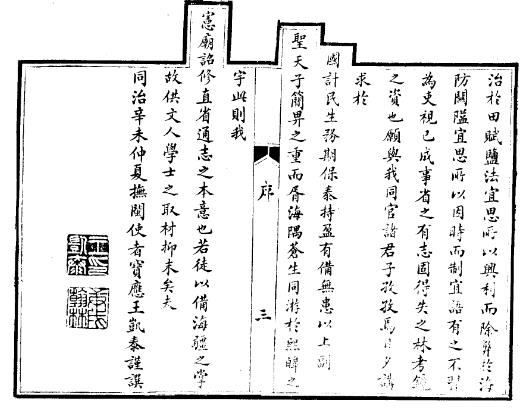 治於田賦鹽法宜思所以興利而除弊於海
防關隘宜思所以因時而制宜語有之不習
為吏視已成事省之有志固得失之林考鏡
之資也願與我同官諸君子孜孜焉日夕講
求於
國計民生務期保泰持盈有備無患以上副
聖天子簡畀之重而胥海隅蒼生同游於熙皞之
序
三
宇此則我
憲廟詔修直省通志之本意也若徒以備海疆之掌
故供文人學士之取材抑末矣夫
同治辛未仲夏撫閩使者寶應王凱泰謹譔
庚戌翰林